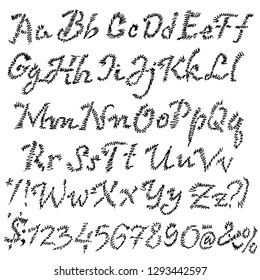 Aa Bb Cc Dd Ee Ff
Gg Hh Ii Jj Kk Ll
Mm Nn Oo Pp Qq
Rr Ss Tt Uu Vv
*!! Ww Xx Yy Zz?)
$;1234567890@&%
shutterstock.com · 1293442597